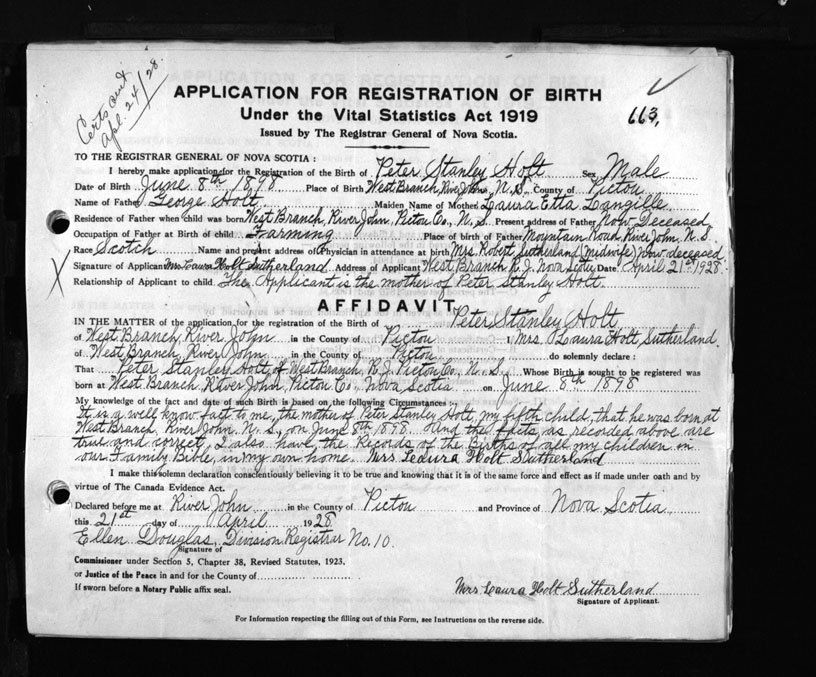 Certs sent
Apl. 24/28.
APPLICATION FOR REGISTRATION OF BIRTH
Under the Vital Statistics Act 1919
663,
Issued by The Registrar General of Nova Scotia.
TO THE REGISTRAR GENERAL OF NOVA SCOTIA :
I hereby make application for the Registration of the Birth of Peter Stanley Holt Sex Male
Date of Birth June 8th 1898 Place of Birth West Branch, River John, N. S. County of Pictou
Name of Father George Holt Maiden Name of Mother Laura Etta Langille
Residence of Father when child was born West Branch, River John, Pictou Co., N. S. Present address of Father Now Deceased
Occupation of Father at Birth of child Farming Place of birth of Father Mountain Road, River John, N. S.
Race Scotch Name and present address of Physician in attendance at birth Mrs. Robert Sutherland (Midwife) Now deceased
Signature of Applicant Mrs Laura Holt Sutherland Address of Applicant West Branch R. J. Nova Scotia Date April 21st 1928.
Relationship of Applicant to child. The Applicant is the mother of Peter Stanley Holt.
AFFIDAVIT
IN THE MATTER of the application for the registration of the Birth of Peter Stanley Holt
of West Branch, River John in the County of Pictou I, Mrs. Laura Holt Sutherland
of West Branch, River John in the County of Pictou do solemnly declare :
That Peter Stanley Holt of West Branch, R. J. Pictou Co., N. S., Whose Birth is sought to be registered was
born at West Branch, River John, Pictou Co., Nova Scotia on June 8th 1898
My knowledge of the fact and date of such Birth is based on the following Circumstances :
It is a well know fact to me, the mother of Peter Stanley Holt, my fifth child, that he was born at
West Branch, River John, N. S., on June 8th, 1898. And the facts as recorded above are
true and correct, I also have the Records of the Births of all my children in
our Family Bible, in my own home. Mrs Laura Holt Sutherland
I make this solemn declaration conscientiously believing it to be true and knowing that it is of the same force and effect as if made under oath and by
virtue of The Canada Evidence Act.
Declared before me at River John in the County of Pictou and Province of Nova Scotia
this 21st day of April 1928
Ellen Douglas, Division Registrar No. 10.
Signature of
Commissioner under Section 5, Chapter 38, Revised Statutes, 1923,
or Justice of the Peace in and for the County of
If sworn before a Notary Public affix seal.
Mrs. Laura Holt Sutherland
Signature of Applicant.
For Information respecting the filling out of this Form, see Instructions on the reverse side.